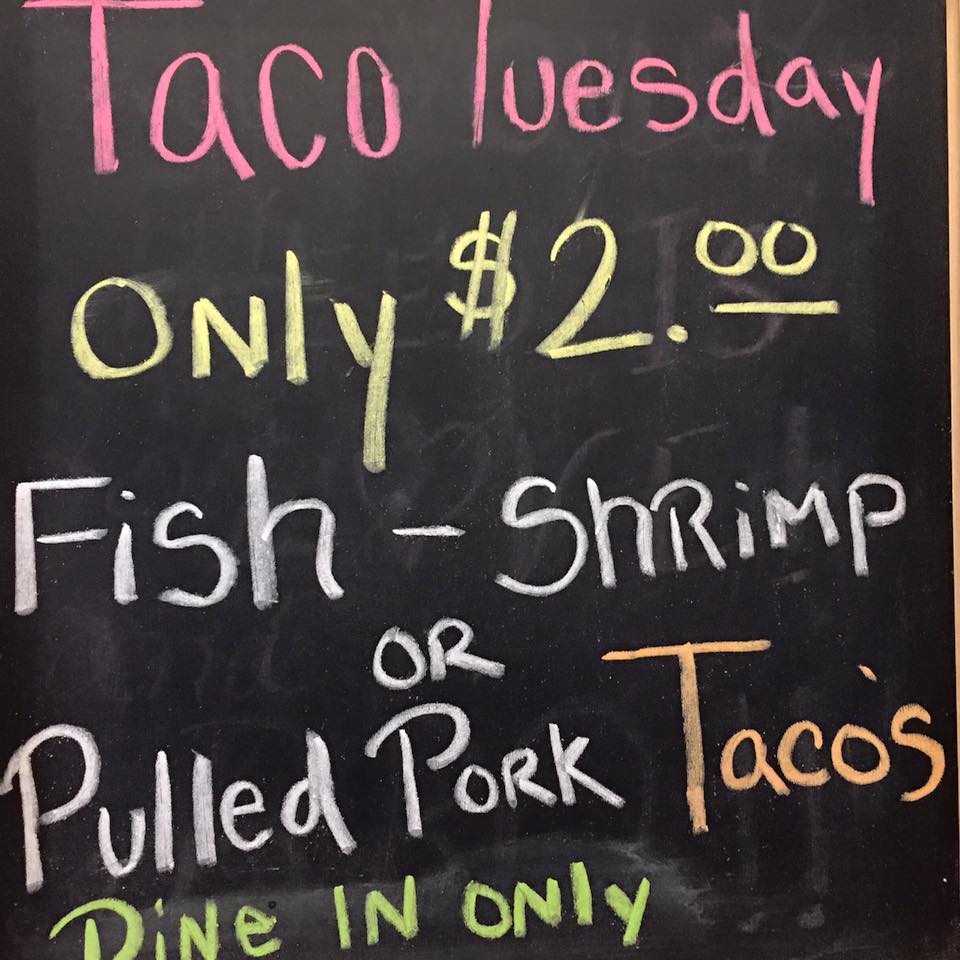 Taco Tuesday
Only $2.00
Fish - Shrimp
OR
Pulled Pork Taco's
Dine IN ONly